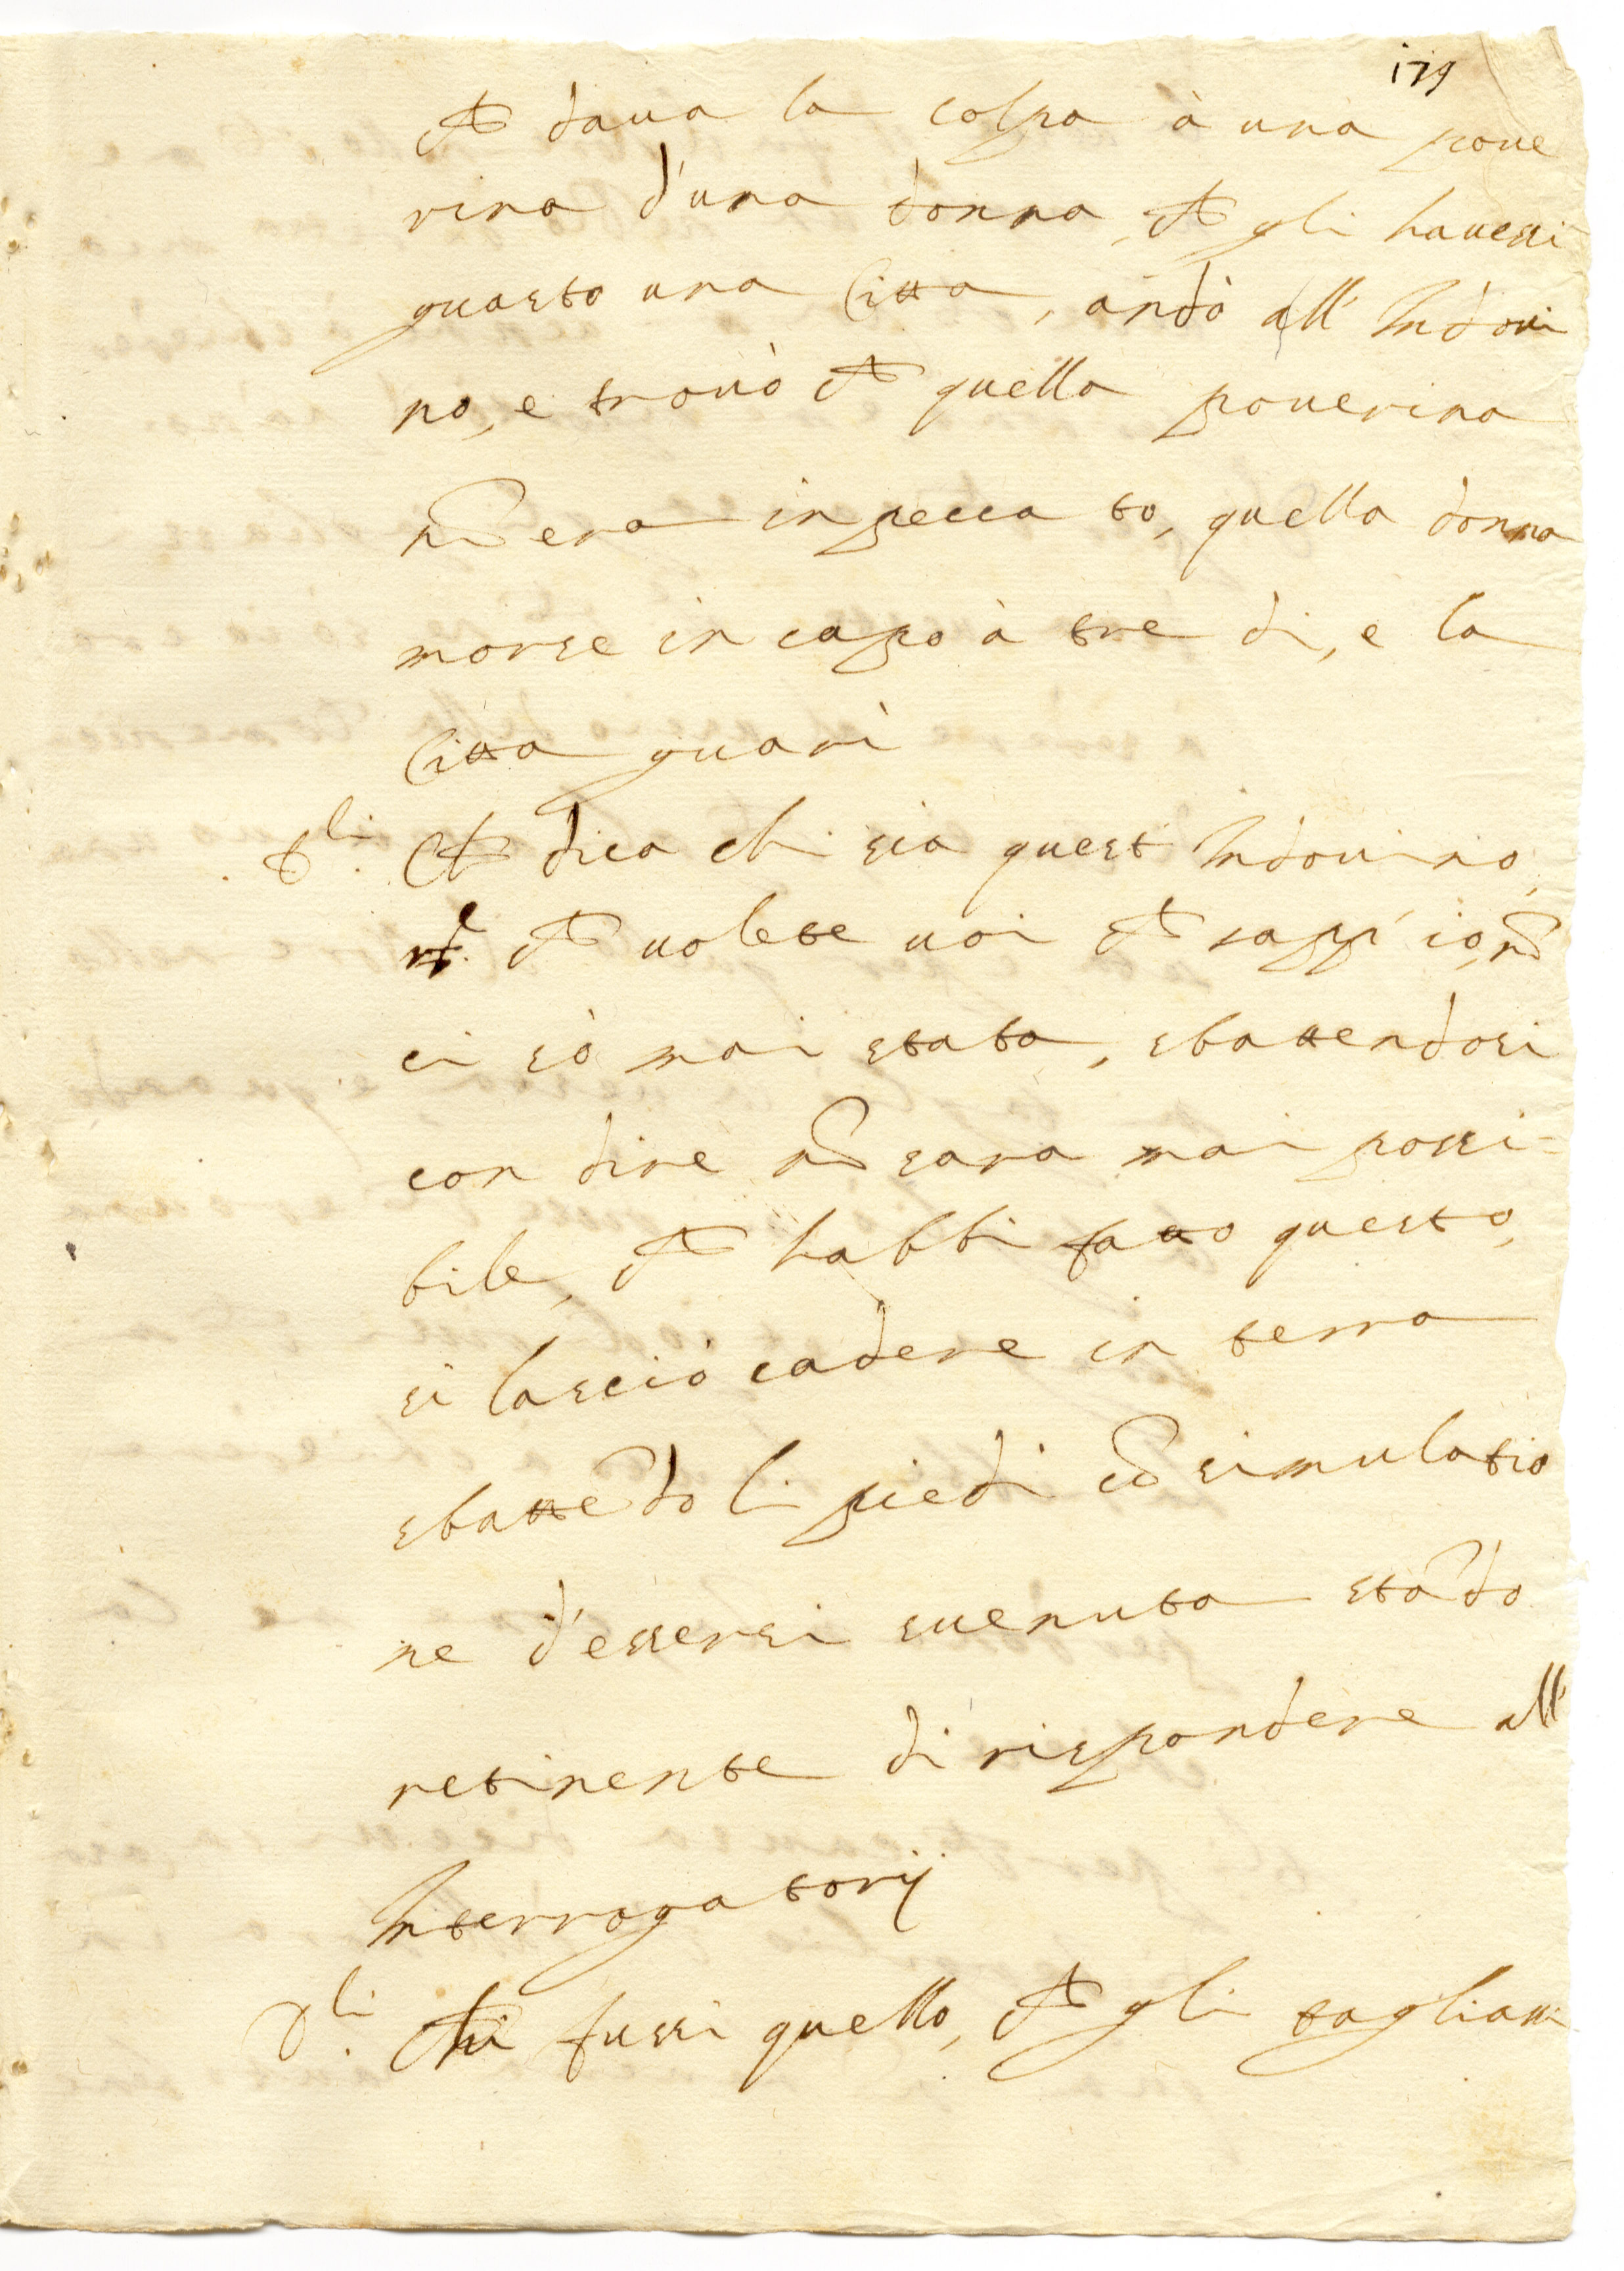 179
che daua la colpa à una poue
rina d'una donna, che gli hauessi
guasto una Citta, andò all' Indoui
no, e trouò che quella pouerina
nō era in pecca to, quella donna
morse in capo à tre di, e la
Citta guarì
Che dica chi sia quest Indouino,
che uolete uoi che sapp' io, nō
ci sò mai stata, sbattendosi
con dire nō sara mai possi-
bile, che habbi fatto questo,
si lasciò cadere in terra
sbattēdo li piedi cō simulatio
ne d'essersi suenuta stādo
retinente di rispondere all'
Interrogatorij
Chi fussi quello, che gli tagliassi